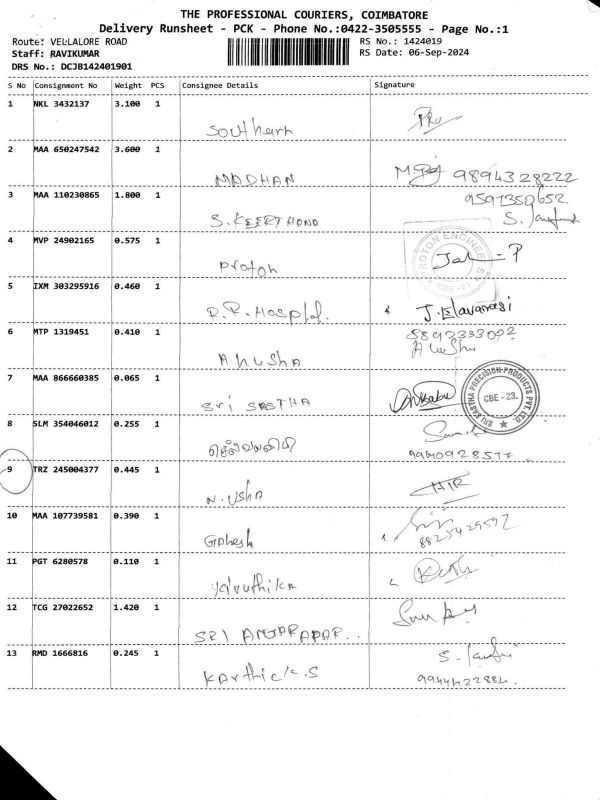 THE PROFESSIONAL COURIERS, COIMBATORE
Delivery Runsheet - PCK - Phone No.:0422-3505555 - Page No.:1
Route: VELLALORE ROAD RS No.: 1424019
Staff: RAVIKUMAR RS Date: 06-Sep-2024
DRS No.: DCJB142401901
S No Consignment No Weight PCS Consignee Details Signature
1 NKL 3432137 3.100 1
Southern
2 MAA 650247542 3.600 1
MADHAN 9894328222
3 MAA 110230865 1.800 1 9597350652
S. KEERTHONO
4 MVP 24902165 0.575 1
Proton
5 IXM 303295916 0.460 1
R.R. Hospital. J. Elavarasi
6 MTP 1319451 0.410 1
Anusha
7 MAA 866660385 0.065 1
Sri SASTHA
SRI SASTHA PRECISION PRODUCTS PVT. LTD.
CBE - 23.
8 SLM 354046012 0.255 1
9 TRZ 245004377 0.445 1
N. Usha
10 MAA 107739581 0.390 1
Ganesh 8825429592
11 PGT 6280578 0.110 1
Yaruthika
12 TCG 27022652 1.420 1
SRI
13 RMD 1666816 0.245 1
Karthick.S 9944422884.